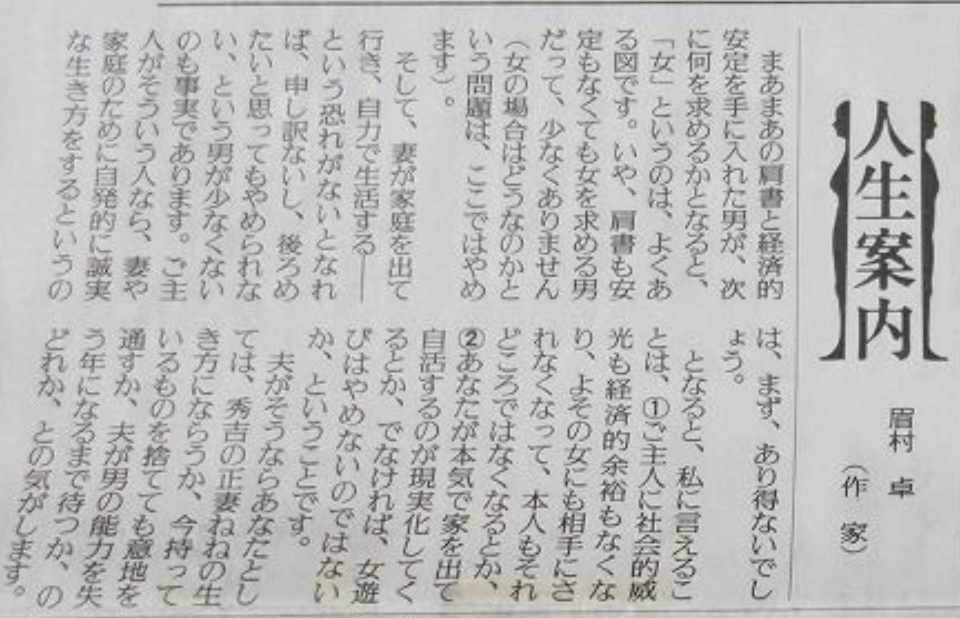 人生案内
眉村 卓
(作 家)
まあまあの肩書と経済的
安定を手に入れた男が、次
に何を求めるかとなると、
「女」というのは、よくあ
る図です。いや、肩書も安
定もなくても女を求める男
だって、少なくありません
(女の場合はどうなのかと
いう問題は、ここではやめ
ます)。
そして、妻が家庭を出て
行き、自力で生活する――
という恐れがないとなれ
ば、申し訳ないし、後ろめ
たいと思ってもやめられな
い、という男が少なくない
のも事実であります。ご主
人がそういう人なら、妻や
家庭のために自発的に誠実
な生き方をするというの
は、まず、あり得ないでし
ょう。
となると、私に言えるこ
とは、①ご主人に社会的威
光も経済的余裕もなくな
り、よその女にも相手にさ
れなくなって、本人もそれ
どころではなくなるとか、
②あなたが本気で家を出て
自活するのが現実化してく
るとか、でなければ、女遊
びはやめないのではない
か、ということです。
夫がそうならあなたとし
ては、秀吉の正妻ねねの生
き方にならうか、今持って
いるものを捨てても意地を
通すか、夫が男の能力を失
う年になるまで待つか、の
どれか、との気がします。